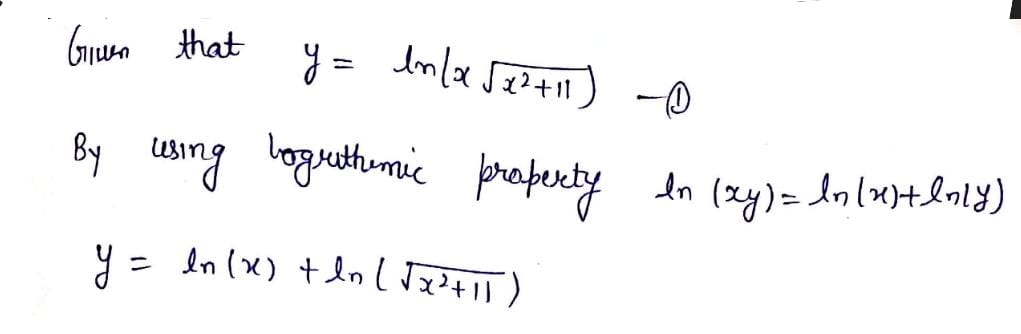 Given that y = ln(x √x²+11) —①
By using logruthemic property ln (xy) = ln(x)+ln(y)
y = ln(x) + ln(√x²+11)